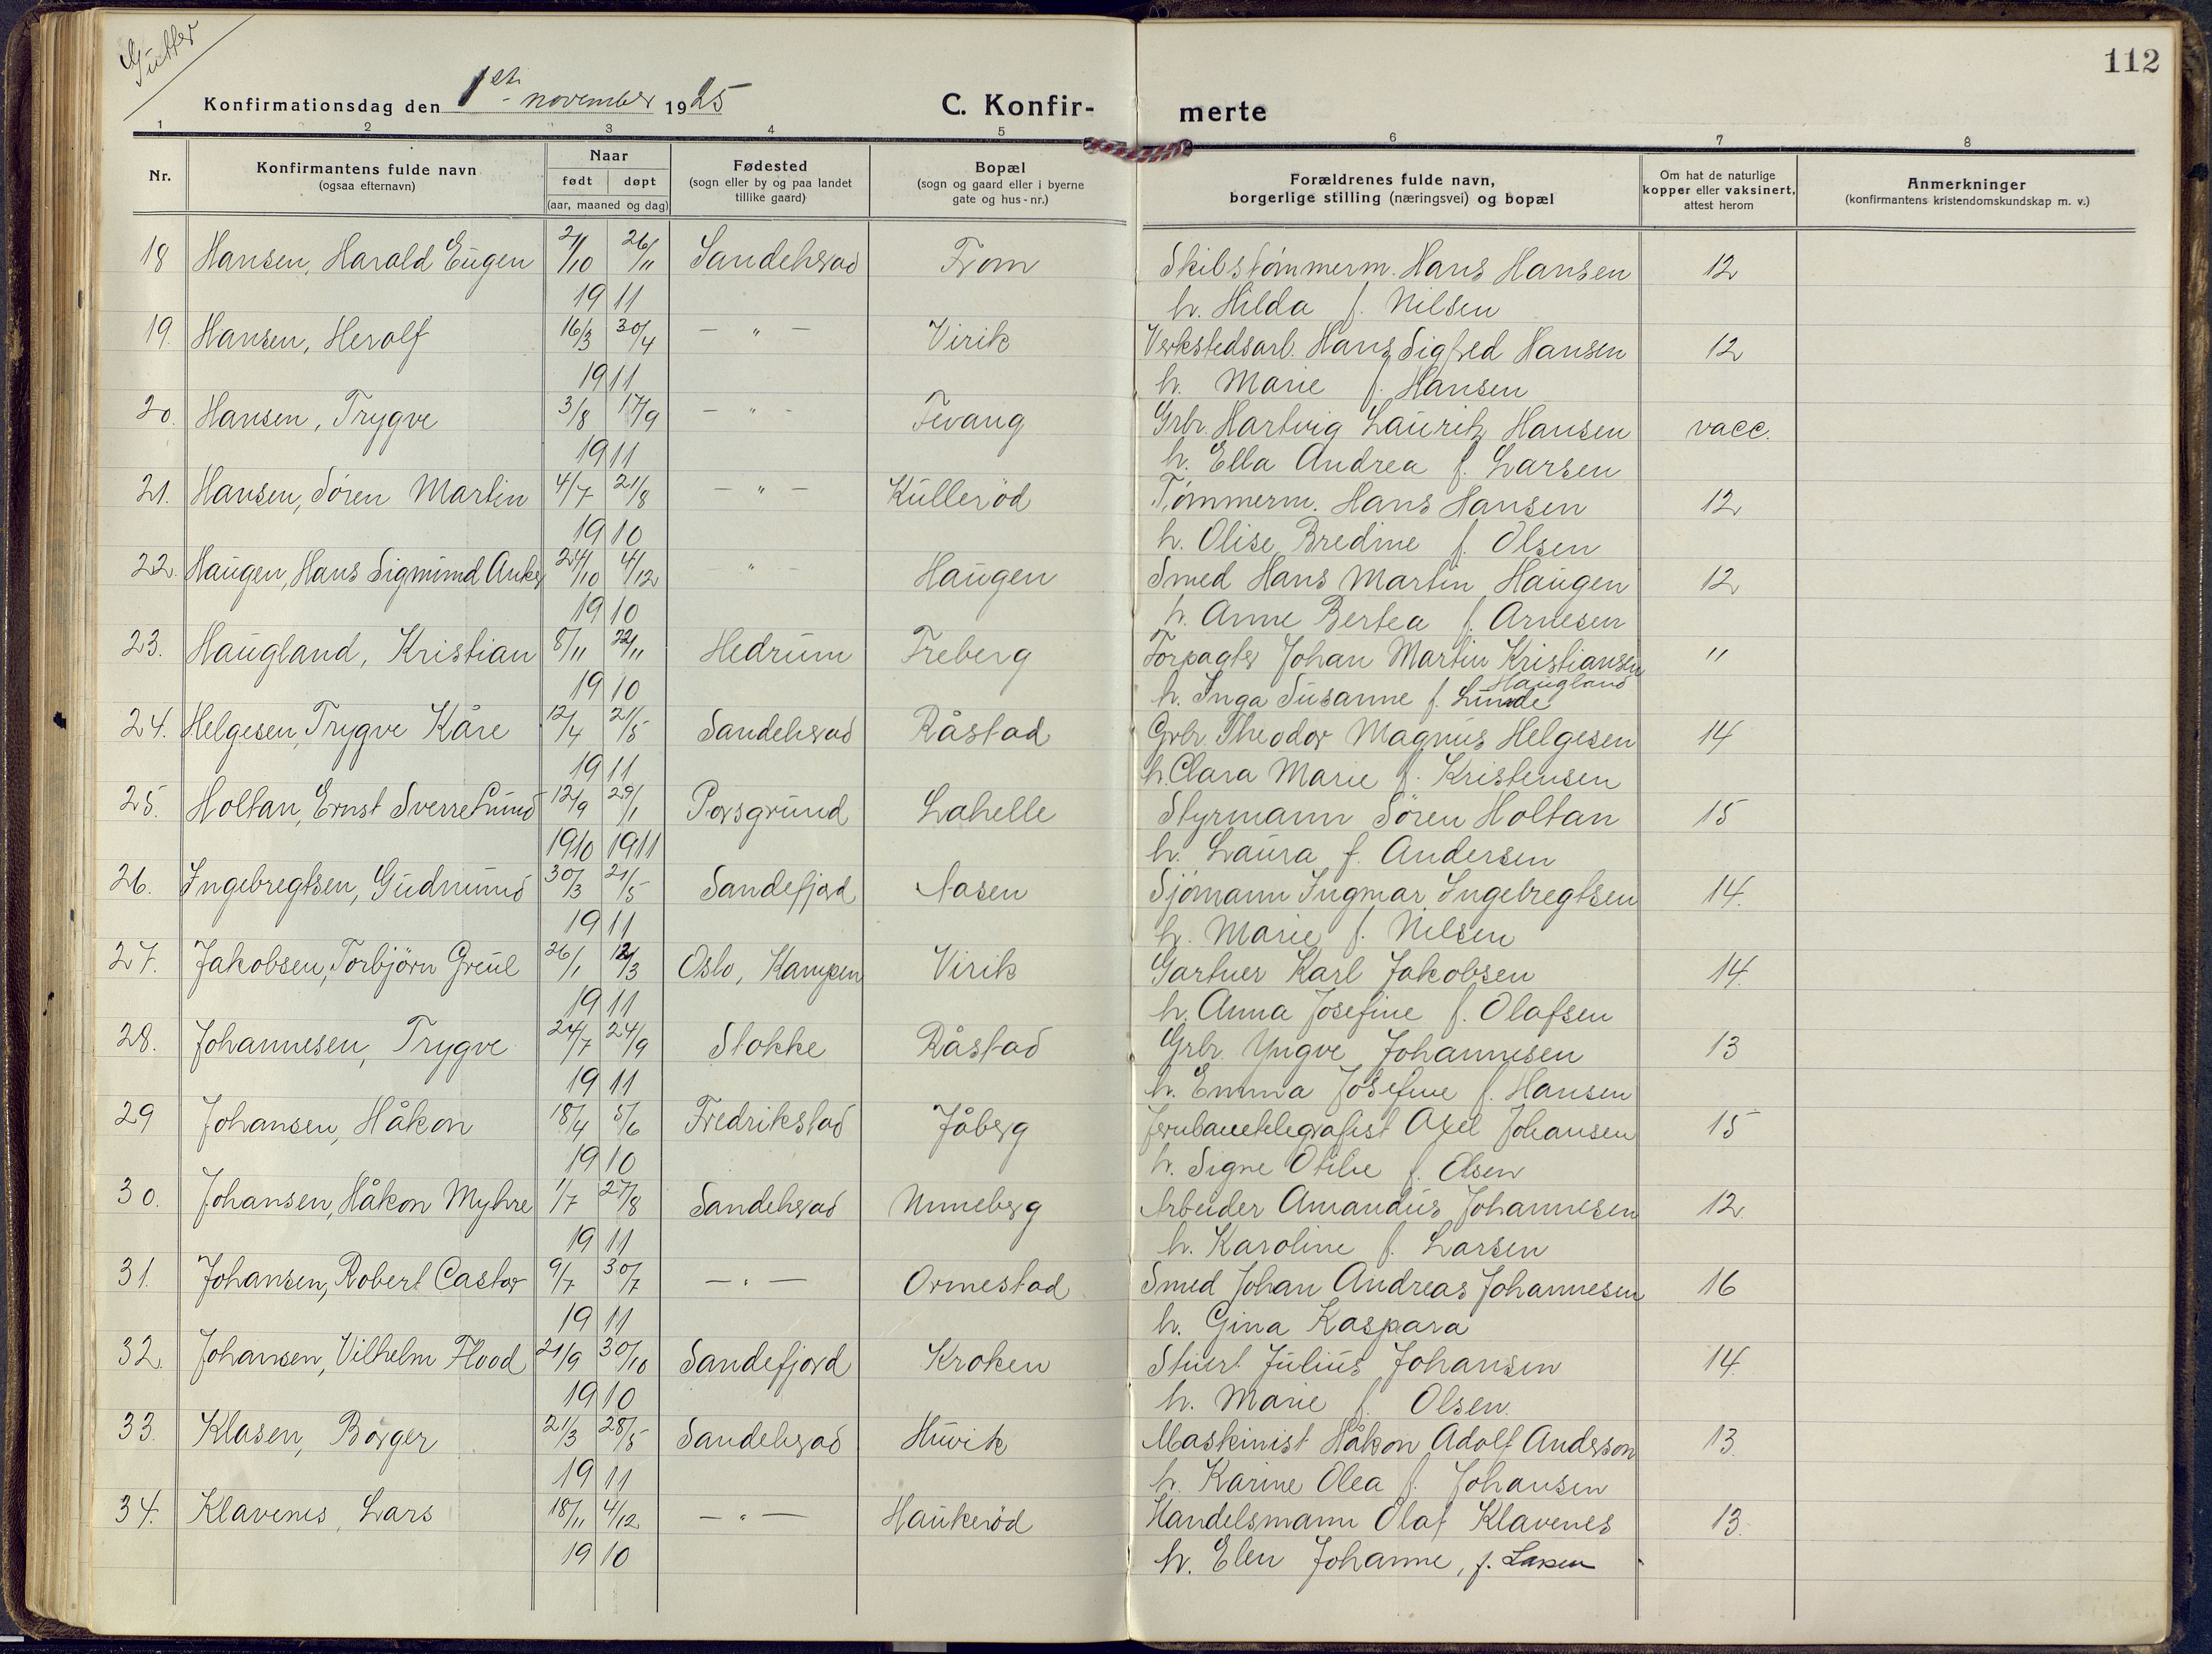 Gutter
112
Konfirmationsdag den 1st november 1925 C. Konfir- merte
1 2 3 4 5 6 7 8
Nr. Konfirmantens fulde navn (ogsaa efternavn) Naar født døpt (aar, maaned og dag) Fødested (sogn eller by og paa landet tillike gaard) Bopæl (sogn og gaard eller i byerne gate og hus-nr.) Forældrenes fulde navn, borgerlige stilling (næringsvei) og bopæl Om hat de naturlige kopper eller vaksinert, attest herom Anmerkninger (konfirmantens kristendomskundskap m. v.)
18 Hansen, Harald Eugen 2/10 26/11 Sandeherad From Skibstømmerm. Hans Hansen 12
19 11 h. Hilda f. Nilsen
19. Hansen, Herolf 16/3 30/4 — " — Virik Verkstedsarb. Hans Sigfred Hansen 12
19 11 h. Marie f. Hansen
20. Hansen, Trygve 3/8 17/9 — " - Fevang Grbr. Hartvig Lauritz Hansen vacc.
19 11 h. Ella Andrea f. Larsen
21. Hansen, Søren Martin 4/7 21/8 — " — Kullerød Tømmerm. Hans Hansen 12
19 10 h. Olise Bredine f. Olsen
22. Haugen, Hans Sigmund Anker 24/10 4/12 - " - Haugen Smed Hans Martin Haugen 12
19 10 h. Anne Bertea f. Arnesen
23. Haugland, Kristian 8/11 22/11 Hedrum Freberg Forpagter Johan Martin Kristiansen "
Haugland
19 10 h. Inga Susanne f. Lunde
24. Helgesen, Trygve Kåre 12/4 21/5 Sandeherad Råstad Grbr. Theodor Magnus Helgesen 14
19 11 h. Clara Marie f. Kristensen
25. Holtan, Ernst Sverre Lund 12/9 29/1 Porsgrund Lahelle Styrmann Søren Holtan 15
1910 1911 h. Laura f. Andersen
26. Ingebregtsen, Gudmund 30/3 21/5 Sandefjord Aasen Sjømann Ingmar Ingebregtsen 14.
19 11 h. Marie f. Nilsen
27. Jakobsen, Torbjørn Greul 26/1 12/3 Oslo, Kampen Virik Gartner Karl Jakobsen 14.
19 11 h. Anna Josefine f. Olafsen
28. Johannesen, Trygve 24/7 24/9 Stokke Råstad Grbr. Yngve Johannesen 13
19 11 h. Emma Josefine f. Hansen
29 Johansen, Håkon 18/4 5/6 Fredrikstad Jåberg Jernbanetelegrafist Axel Johansen 15
19 10 h. Signe Otilie f. Olsen
30. Johansen, Håkon Myhre 1/7 27/8 Sandeherad Unneberg Arbeider Amandus Johannesen 12.
19 11 h. Karoline f. Larsen
31. Johansen, Robert Castor 9/7 30/7 — " — Ormestad Smed Johan Andreas Johannesen 16
19 11 h. Gina Kaspara
32. Johansen, Vilhelm Flood 21/9 30/10 Sandefjord Kroken Stuert Julius Johansen 14.
19 10 h. Marie f. Olsen.
33. Klasen, Børger 21/3 28/5 Sandeherad Huvik Maskinist Håkon Adolf Anderson 13.
19 11 h. Karine Olea f. Johansen
34. Klavenes, Lars 18/11 4/12 — " — Haukerød Handelsmann Olaf Klavenes 13.
19 10 h. Elen Johanne, f. Larsen